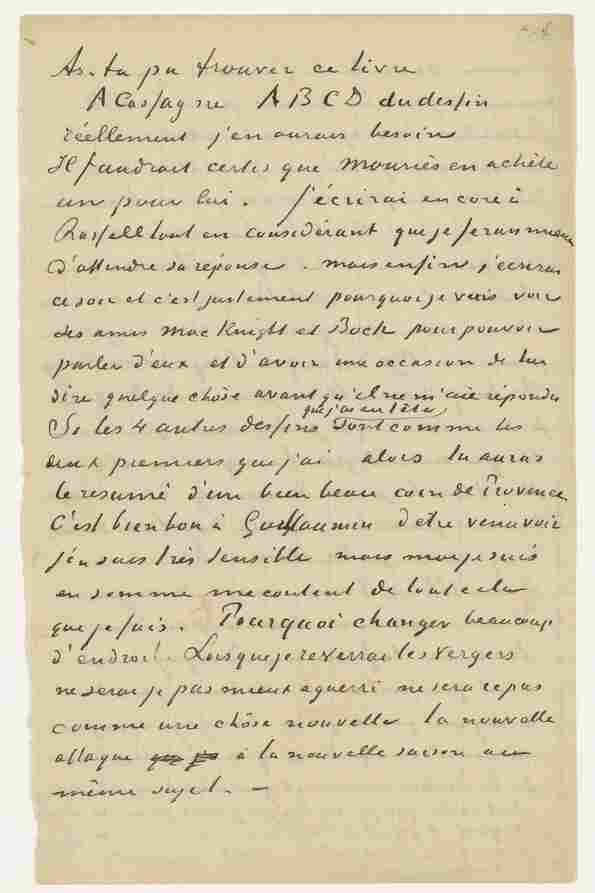 As-tu pu trouver ce livre
A Cassagne A B C D du dessin
réellement j'en aurais besoin
Il faudrait certes que Mouriès en achète
un pour lui. J'écrirai encore à
Russell tout en considérant que je ferais mieux
d'attendre sa réponse. mais enfin j'écrirai
ce soir et c'est justement pourquoi je vais voir
des amis MacKnight et Bock pour pouvoir
parler d'eux et d'avoir une occasion de lui
dire quelque chôse avant qu'il ne m'aie répondu
que j'ai en tête
Si les 4 autres dessins sont comme les
deux premiers que j'ai alors tu auras
le resumé d'un bien beau coin de Provence
C'est bien bon à Guillaumin d'etre venu voir
j'en suis très sensible mais moi je suis
en somme mecontent de tout cela
que je fais. Pourquoi changer beaucoup
d'endroit. Lorsque je reverrai les vergers
ne serai je pas mieux aguerri ne sera ce pas
comme une chôse nouvelle la nouvelle
attaque à la nouvelle saison au
même sujet. —